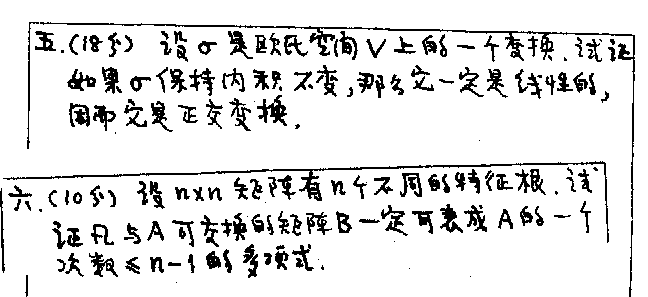 五.(18分) 设σ是欧氏空间V上的一个变换.试证
如果σ保持内积不变,那么它一定是线性的,
因而它是正交变换.
六.(10分) 设n×n矩阵有n个不同的特征根.试
证凡与A可交换的矩阵B一定可表成A的一个
次数≤n-1的多项式.